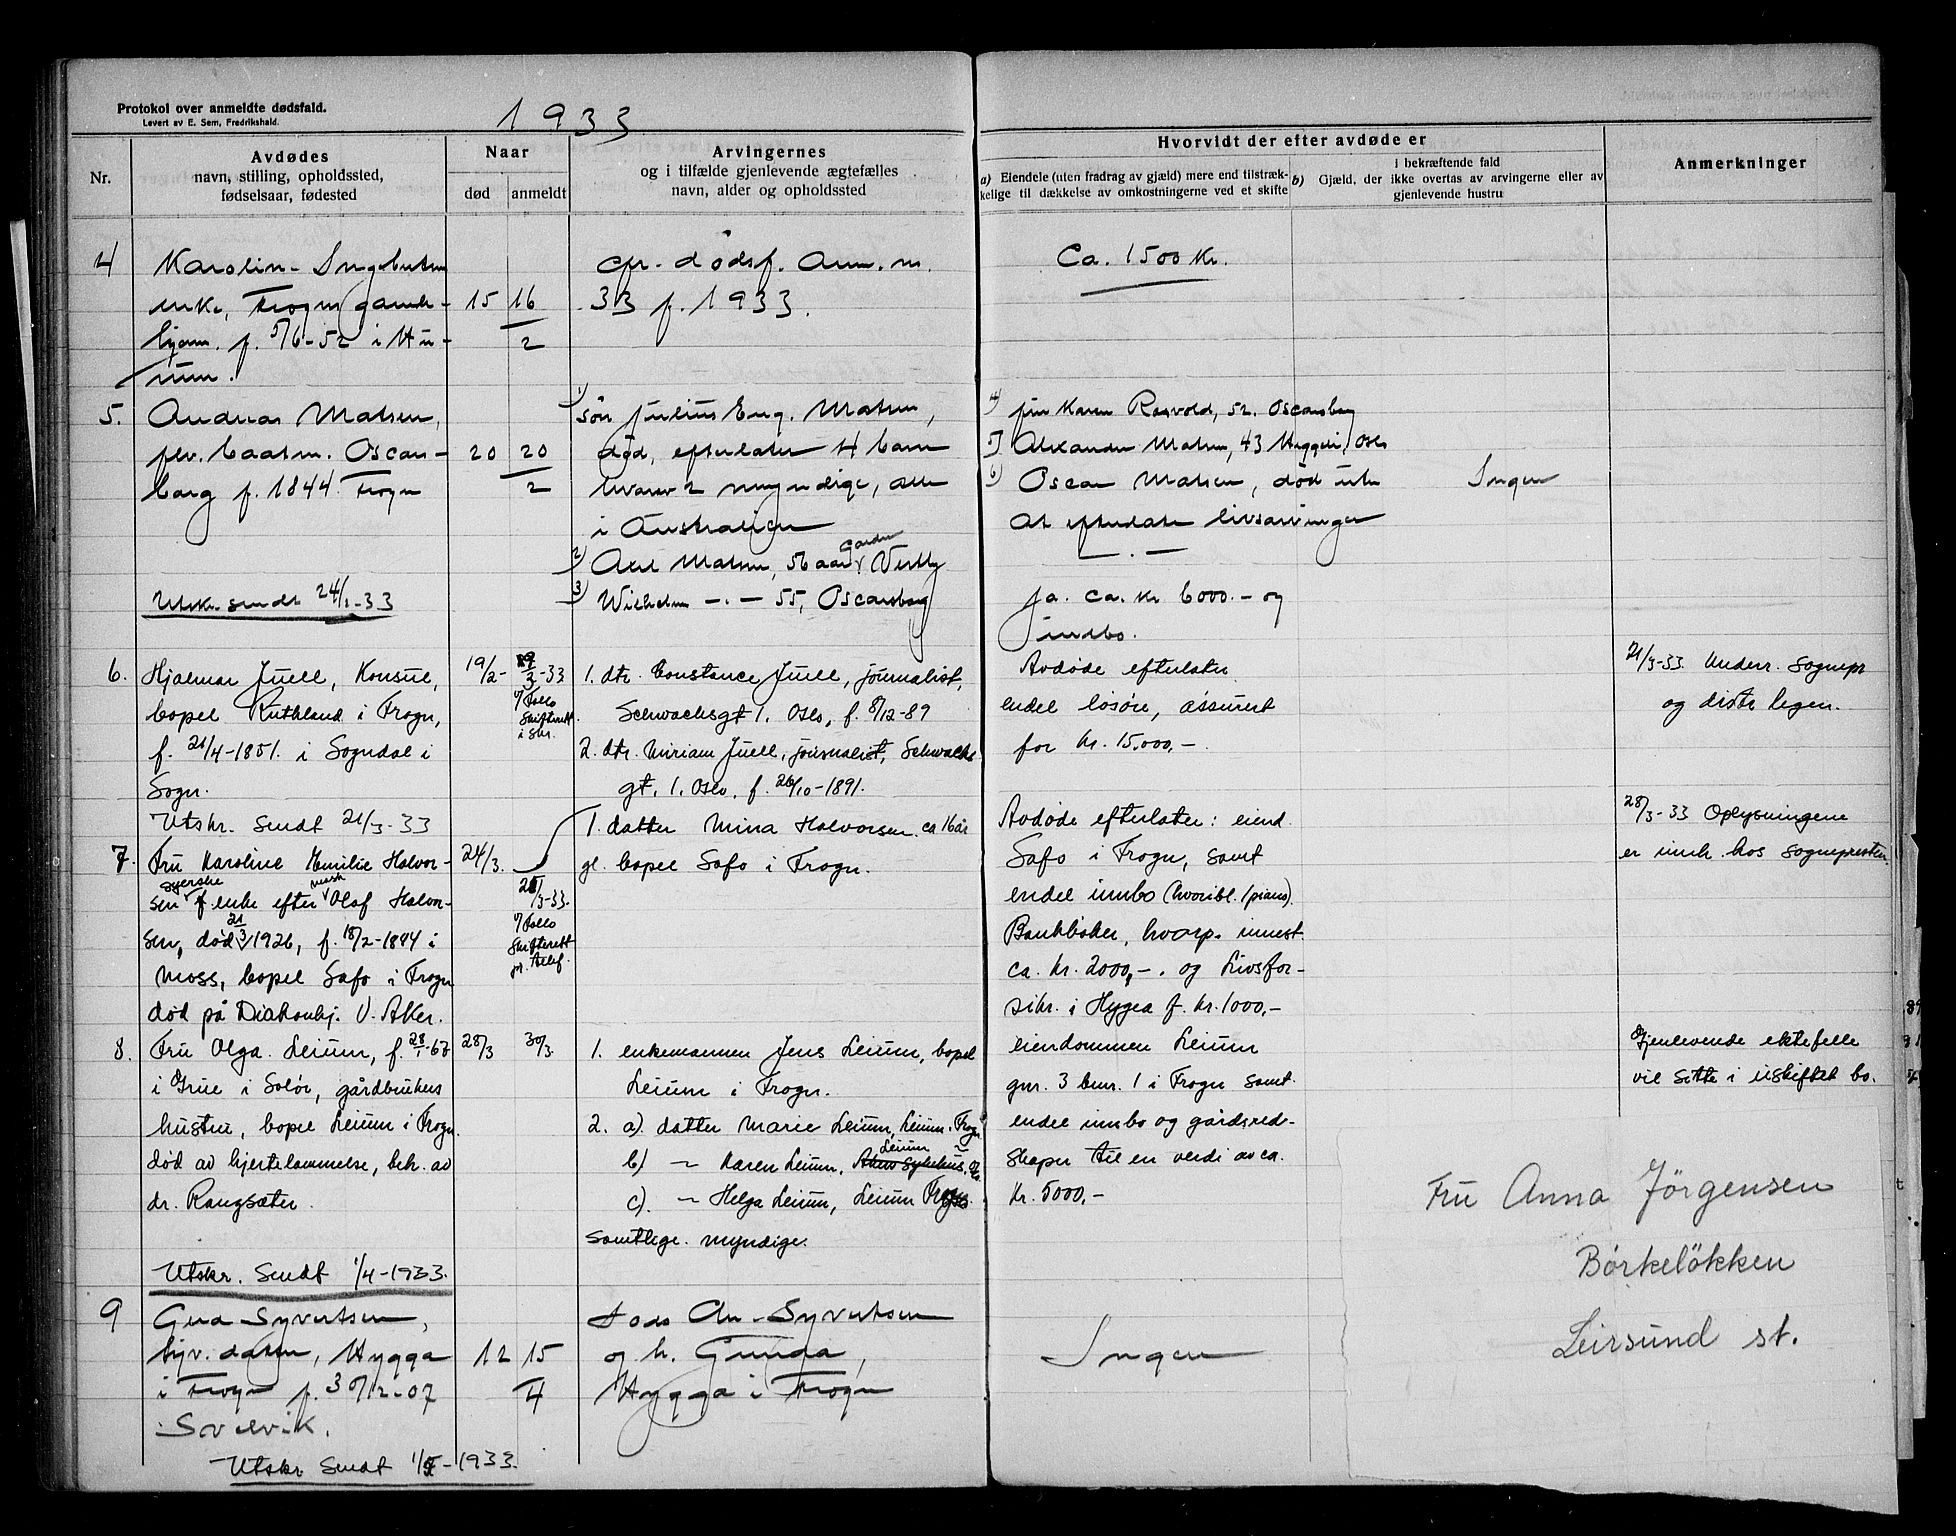 Protokol over anmeldte dødsfald.
Levert av E. Sem, Fredrikshald.
1933
Nr.
Avdødes
navn, stilling, opholdssted,
fødselsaar, fødested
Naar
død
anmeldt
Arvingernes
og i tilfælde gjenlevende ægtefælles
navn, alder og opholdssted
Hvorvidt der efter avdøde er
a) Eiendele (uten fradrag av gjæld) mere end tilstræk-
kelige til dækkelse av omkostningerne ved et skifte
i bekræftende fald
b) Gjæld, der ikke overtas av arvingerne eller av
gjenlevende hustru
Anmerkninger
4
Karolin
enke, Frogn gamle-
hjem. f. 5/6-52 i Hu-
rum.
15 16
2
cfr. dødsf. Anm. nr.
33 f. 1933.
Ca. 1500 Kr.
5.
Andreas Matsen,
fhv. baatsm. Oscars-
borg f. 1844. Frogn
Utskr. sendt 24/2-33
20 20
2
1) søn Julius Eng. Matsen,
død, efterlater 4 barn
hvorav 2 umyndige, alle
i Australien
2) Axel Matsen, 56 aar, Garder Vestby
3) Wilhelm -.- 55, Oscarsborg
4) fru Karen Rosvold, 52. Oscarsborg
5) Alexander Matsen, 43 Oslo
6) Oscar Matsen, død uten
at efterlate livsarvinger
-.-
Ja. ca. kr 6000.- og
indbo.
Ingen
6.
Hjalmar Juell, Konsul,
bopel Ruthland i Frogn,
f. 21/4-1851. i Sogndal i
Sogn.
Utskr. sendt 21/3-33
19/2-
3-33
v/ Follo
Skifterett
i skr.
1. dtr. Constance Juell, journalist,
Schwachsgt 1. Oslo, f. 8/12-89
2. dtr. Miriam Juell, journalist, Schwachs
gt. 1. Oslo. f. 26/10-1891.
Avdøde efterlater
endel løsøre, assurert
for kr. 15.000,-.
21/3-33. Underr. sognepr
og distr. legen.
7.
Fru Karoline Emilie Halvor-
sen syerske enke efter mask Olaf Halvor-
sen, død 21/3 1926, f. 18/2-1884 i
Moss, bopel Safo i Frogn
død på Diakonhj. V. Aker.
24/3.
/3-33.
v/ Follo
Skifterett
pr. telef.
1. datter Mina Halvorsen. ca 16 år
gl. bopel Safo i Frogn.
Avdøde efterlater: eiend.
Safo i Frogn, samt
endel innbo (hvoribl. 1 piano).
Bankbøker, hvorp. innest.
ca. kr. 2000,-. og Livsfor-
sikr. i Hygea f. kr. 1000,-
28/3-33 Oplysningene
er innh. hos sognepresten
8.
Fru Olga Leium, f. 28/1-63
i Grue i Solør, gårdbrukers
hustru, bopel Leium i Frogn.
død av hjertelammelse, beh. av
dr. Rangsæter.
Utskr. Sendt 1/4-1933.
28/3
30/3.
1. enkemannen Jens Leium, bopel
Leium i Frogn.
2. a). datter Marie Leium, Leium i Frogn
b) - Karen Leium, Leium Akers Sykehus,
c). - Helga Leium, Leium Frogn.
samtlige myndige.
eiendommen Leium
gnr. 3 bnr. 1 i Frogn samt.
endel innbo og gårdsred-
skaper til en verdi av ca.
kr. 5000,-
Gjenlevende ektefelle
vil sitte i uskiftet bo.
9
Syvertsen,
Hygga
i Frogn f. 30/12-07
i Svelvik.
Utskr Sendt 1933.
12 15
4
Syvertsen
og h. Gunda,
Hygga i Frogn
Ingen
Fru Anna Jörgensen
Börkelökken
Leirsund st.